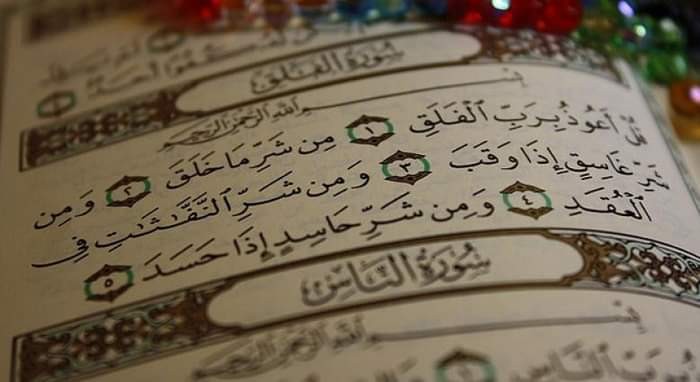 كُفُوًا أَحَدٌ ٤
سُورَةُ الفَلَقِ
بِسْمِ اللَّهِ الرَّحْمَٰنِ الرَّحِيمِ
قُلْ أَعُوذُ بِرَبِّ ٱلْفَلَقِ ١ مِن شَرِّ مَا خَلَقَ ٢ وَمِن
شَرِّ غَاسِقٍ إِذَا وَقَبَ ٣ وَمِن شَرِّ ٱلنَّفَّٰثَٰتِ فِي
ٱلْعُقَدِ ٤ وَمِن شَرِّ حَاسِدٍ إِذَا حَسَدَ ٥
سُورَةُ النَّاسِ
بِسْمِ اللَّهِ الرَّحْمَٰنِ الرَّحِيمِ
بِرَبِّ ٱلنَّاسِ ١